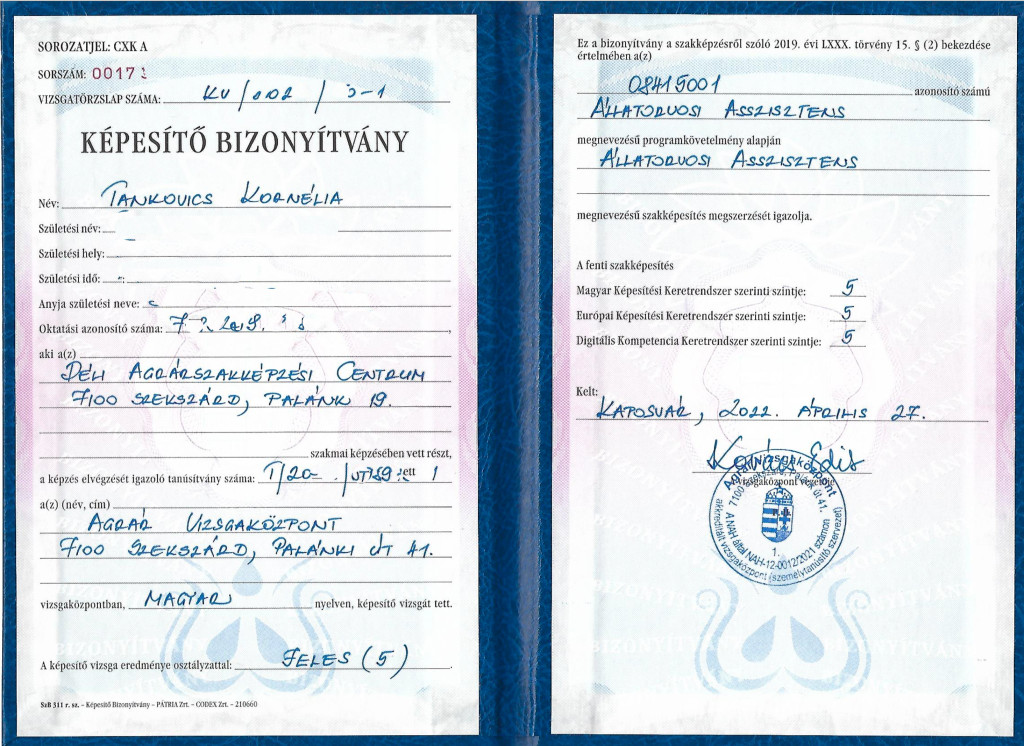 SOROZATJEL: CXK A
SORSZÁM: 0017
VIZSGATÖRZSLAP SZÁMA: KV/002/
KÉPESÍTŐ BIZONYÍTVÁNY
Név: TANKOVICS KORNÉLIA
Születési név:
Születési hely:
Születési idő:
Anyja születési neve:
Oktatási azonosító száma: 7
aki a(z)
DÉLI AGRÁRSZAKKÉPZÉSI CENTRUM
7100 SZEKSZÁRD, PALÁNK 19.
szakmai képzésében vett részt,
a képzés elvégzését igazoló tanúsítvány száma:
a(z) (név, cím)
AGRÁR VIZSGAKÖZPONT
7100 SZEKSZÁRD, PALÁNKI ÚT 41.
vizsgaközpontban, MAGYAR nyelven, képesítő vizsgát tett.
A képesítő vizsga eredménye osztályzattal: JELES (5)
SzB 311 r. sz. – Képesítő Bizonyítvány – PÁTRIA Zrt. – CODEX Zrt. – 210660
Ez a bizonyítvány a szakképzésről szóló 2019. évi LXXX. törvény 15. § (2) bekezdése
értelmében a(z)
08415001 azonosító számú
ÁLLATORVOSI ASSZISZTENS
megnevezésű programkövetelmény alapján
ÁLLATORVOSI ASSZISZTENS
megnevezésű szakképesítés megszerzését igazolja.
A fenti szakképesítés
Magyar Képesítési Keretrendszer szerinti szintje: 5
Európai Képesítési Keretrendszer szerinti szintje: 5
Digitális Kompetencia Keretrendszer szerinti szintje: 5
Kelt:
KAPOSVÁR, 2022. ÁPRILIS 27.
Kovács Edit
vizsgaközpont vezetője
Agrár Vizsgaközpont
7100 Szekszárd, Palánki út 41.
A NAH által NAH-12-0012/2021 számon
akkreditált vizsgaközpont (személytanúsító szervezet)
1.